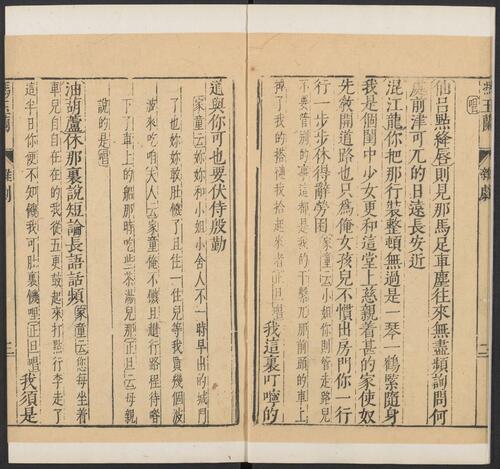 馮玉蘭 雜劇 二
唱
仙呂點絳唇則見那馬足車塵往來無盡頻詢問何
處前津可兀的日遠長安近
混江龍你把那行裝整頓無過是一琴一鶴緊隨身
我是個閨中少女更和這堂上慈親着甚的家使奴
先敎開道路也只爲俺女孩兒不慣出房門你一行
行一步步休得辭勞困家童云小姐你則管走路兒
不要管別的事這都是我的干繫兀那前頭的車上
掉了我的搭連我拾起來者正旦唱我這裏叮嚀的
道與你可也要伏侍殷勤
家童云妳妳和小姐小舍人不一時早出的城門
了也妳妳我肚饑了且住一住兒等我買幾個波
波來吃咱夫人云家童俺不饑且趲行路程待會
下了車上的船那時吃些茶湯兒那正旦云母親
說的是唱
油葫蘆休那裏說短論長語話頻家童云您每坐着
車兒自自在在的我從五更鼓起來打點行李走了
這半日你便不知饑我可肚裏饑哩正旦唱我須是
馮玉蘭 雜劇 三